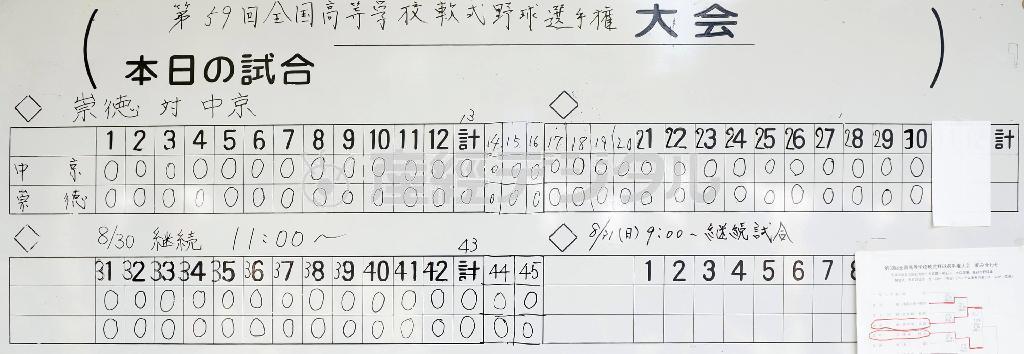 第59回全国高等学校軟式野球選手権 大会
本日の試合
崇徳 対 中京
13
1 2 3 4 5 6 7 8 9 10 11 12 計 14 15 16 17 18 19 20 21 22 23 24 25 26 27 28 29 30 計
中 京 0 0 0 0 0 0 0 0 0 0 0 0 0 0 0 0 0 0 0 0 0 0 0 0 0 0 0 0 0 0
崇 徳 0 0 0 0 0 0 0 0 0 0 0 0 0 0 0 0 0 0 0 0 0 0 0 0 0 0 0 0 0 0
8/30 継続 11:00〜
8/31(日) 9:00〜継続試合
43
31 32 33 34 35 36 37 38 39 40 41 42 計 44 45
1 2 3 4 5 6 7 8
0 0 0 0 0 0 0 0 0 0 0 0 0 0 0
0 0 0 0 0 0 0 0 0 0 0 0 0 0 0
産経デジタル